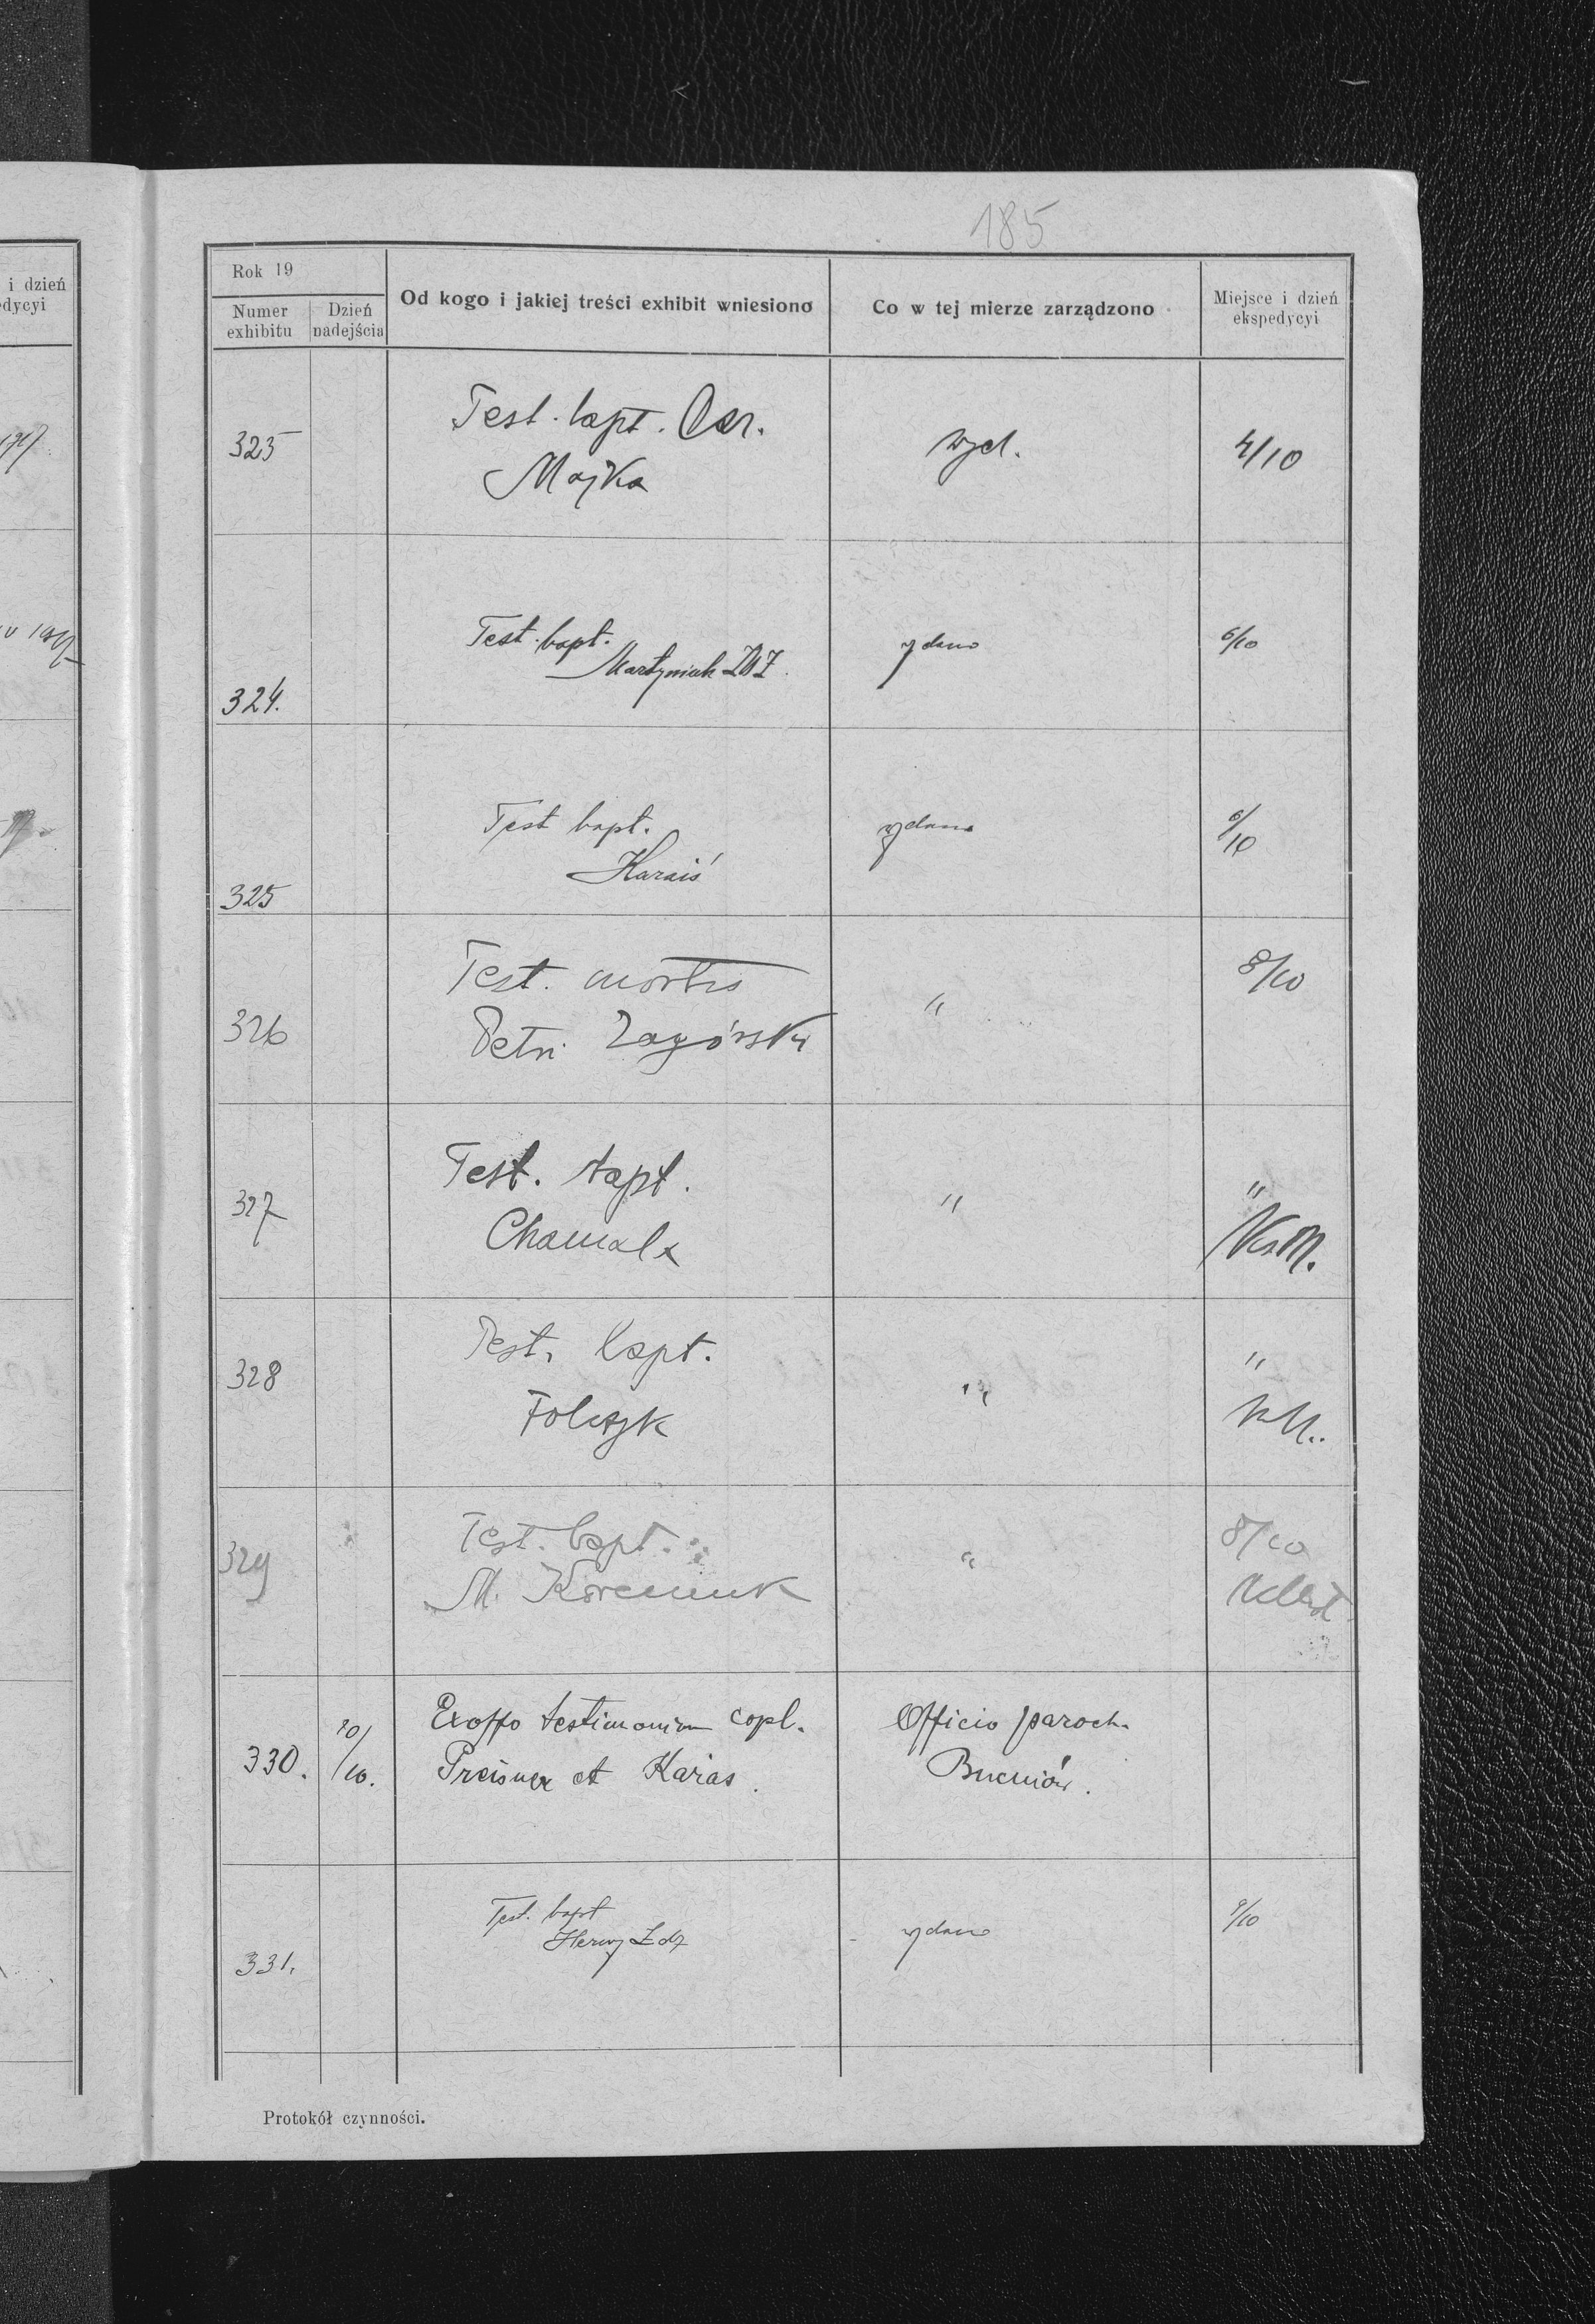 185
Rok 19
Numer exhibitu
Dzień nadejścia
Od kogo i jakiej treści exhibit wniesiono
Co w tej mierze zarządzono
Miejsce i dzień ekspedycyi
i dzień
edycyi
325
Test. bapt. Car.
Majka
wyd.
4/10
324.
Test. bapt.
Martyniuk
wydano
6/10
325
Test bapt.
Haraiś
wydano
6/10
326
Test. mortis
Petri Zagórski
"
8/10
327
Test. bapt.
Chamala
"
"
328
Test. bapt.
Folczyk
"
"
329
Test. bapt.
M.
"
8/10
330.
10/10.
Exoffo testimonium copl.
Preisner et Karas.
Officio paroch.
Bucniów.
331.
Test. bapt
wydano
9/10
Protokół czynności.